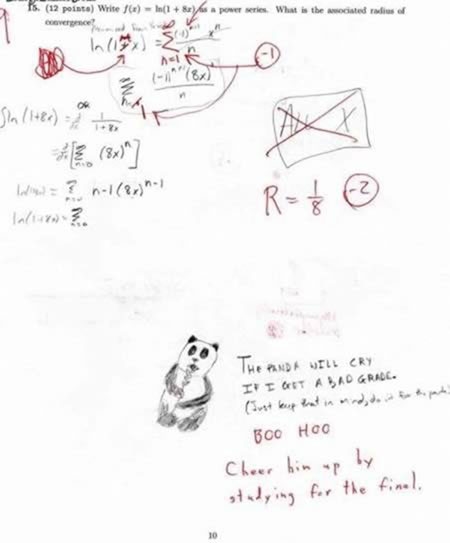 9
15. (12 points) Write f(x) = ln(1 + 8x) as a power series. What is the associated radius of
convergence?
ln(1+x) = Σ n=1 (-1)ⁿ⁺¹ xⁿ / n
-1
Σ (-1)ⁿ⁺¹ (8x)ⁿ / n
1
OR
ln(1+8x) = 1/(1+8x)
[Σ n=0 (8x)ⁿ]
All X
= Σ n-1(8x)ⁿ⁻¹
R = 1/8 -2
ln(1+8x) = Σ
THE PANDA WILL CRY
IF I GET A BAD GRADE.
(Just keep that in mind, do it for the panda)
BOO HOO
Cheer him up by
studying for the final.
10